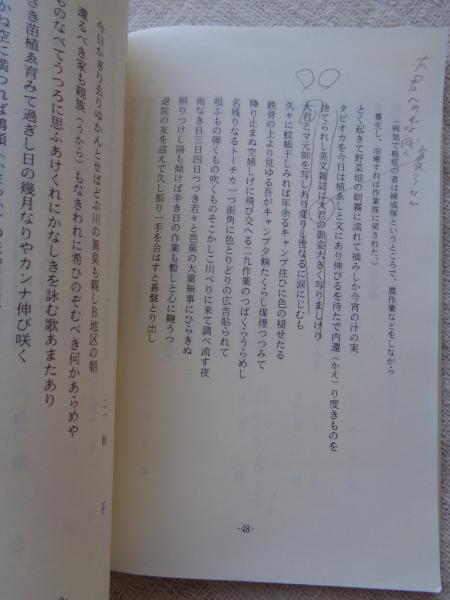 大君への
（病気で軽症の者は練成隊というところで、農作業などをしながら
養生し、治癒すれば作業隊に戻された。）
とく起きて野菜畑の朝霧に濡れて摘みしか今宵の汁の実
タピオカを今日は植ゑしと文にあり伸びるを待たで内還（かえ）り度きものを
捨てられし英文雑誌に大君の面姿大きく写りましけり
大君とマ元帥を写しあり変りし世なるに涙にじむも
久々に蚊帳干しみれば年余るキャンプ住ひに色の褪せたる
鉄骨の上より見ゆる吾がキャンプ夕餉たくらし煤煙つつみて
降り止まぬ空嬉しげに飛び交へる二九作業のつばくらうらめし
名残りなるトーチカ一つ街角に色とりどりの広告貼られて
唄ふもの弾くもの吹くものそこかしこ川べりに来て調べ流す夜
雨なき日三日四日つづき若々と芭蕉の大葉無事にひらきぬ
照りつけし陽も傾けば辛き日の作業も暫しと心に鞭うつ
退院の友を迎えて久し振り一手を合はすと碁盤とり出し
-48-
今日かぎり去りゆかんとせばどぶ川の異臭も親しB地区の朝
還るべき家も親族（うから）もなきわれに希ひのぞむべき何かあらめや
ものなべてうつろに思ふあけくれにかなしきを詠む歌あまたあり
さき苗植ゑ育みて過ぎし日の幾月なりやカンナ伸び咲く
かね空に満つれば鳴頭